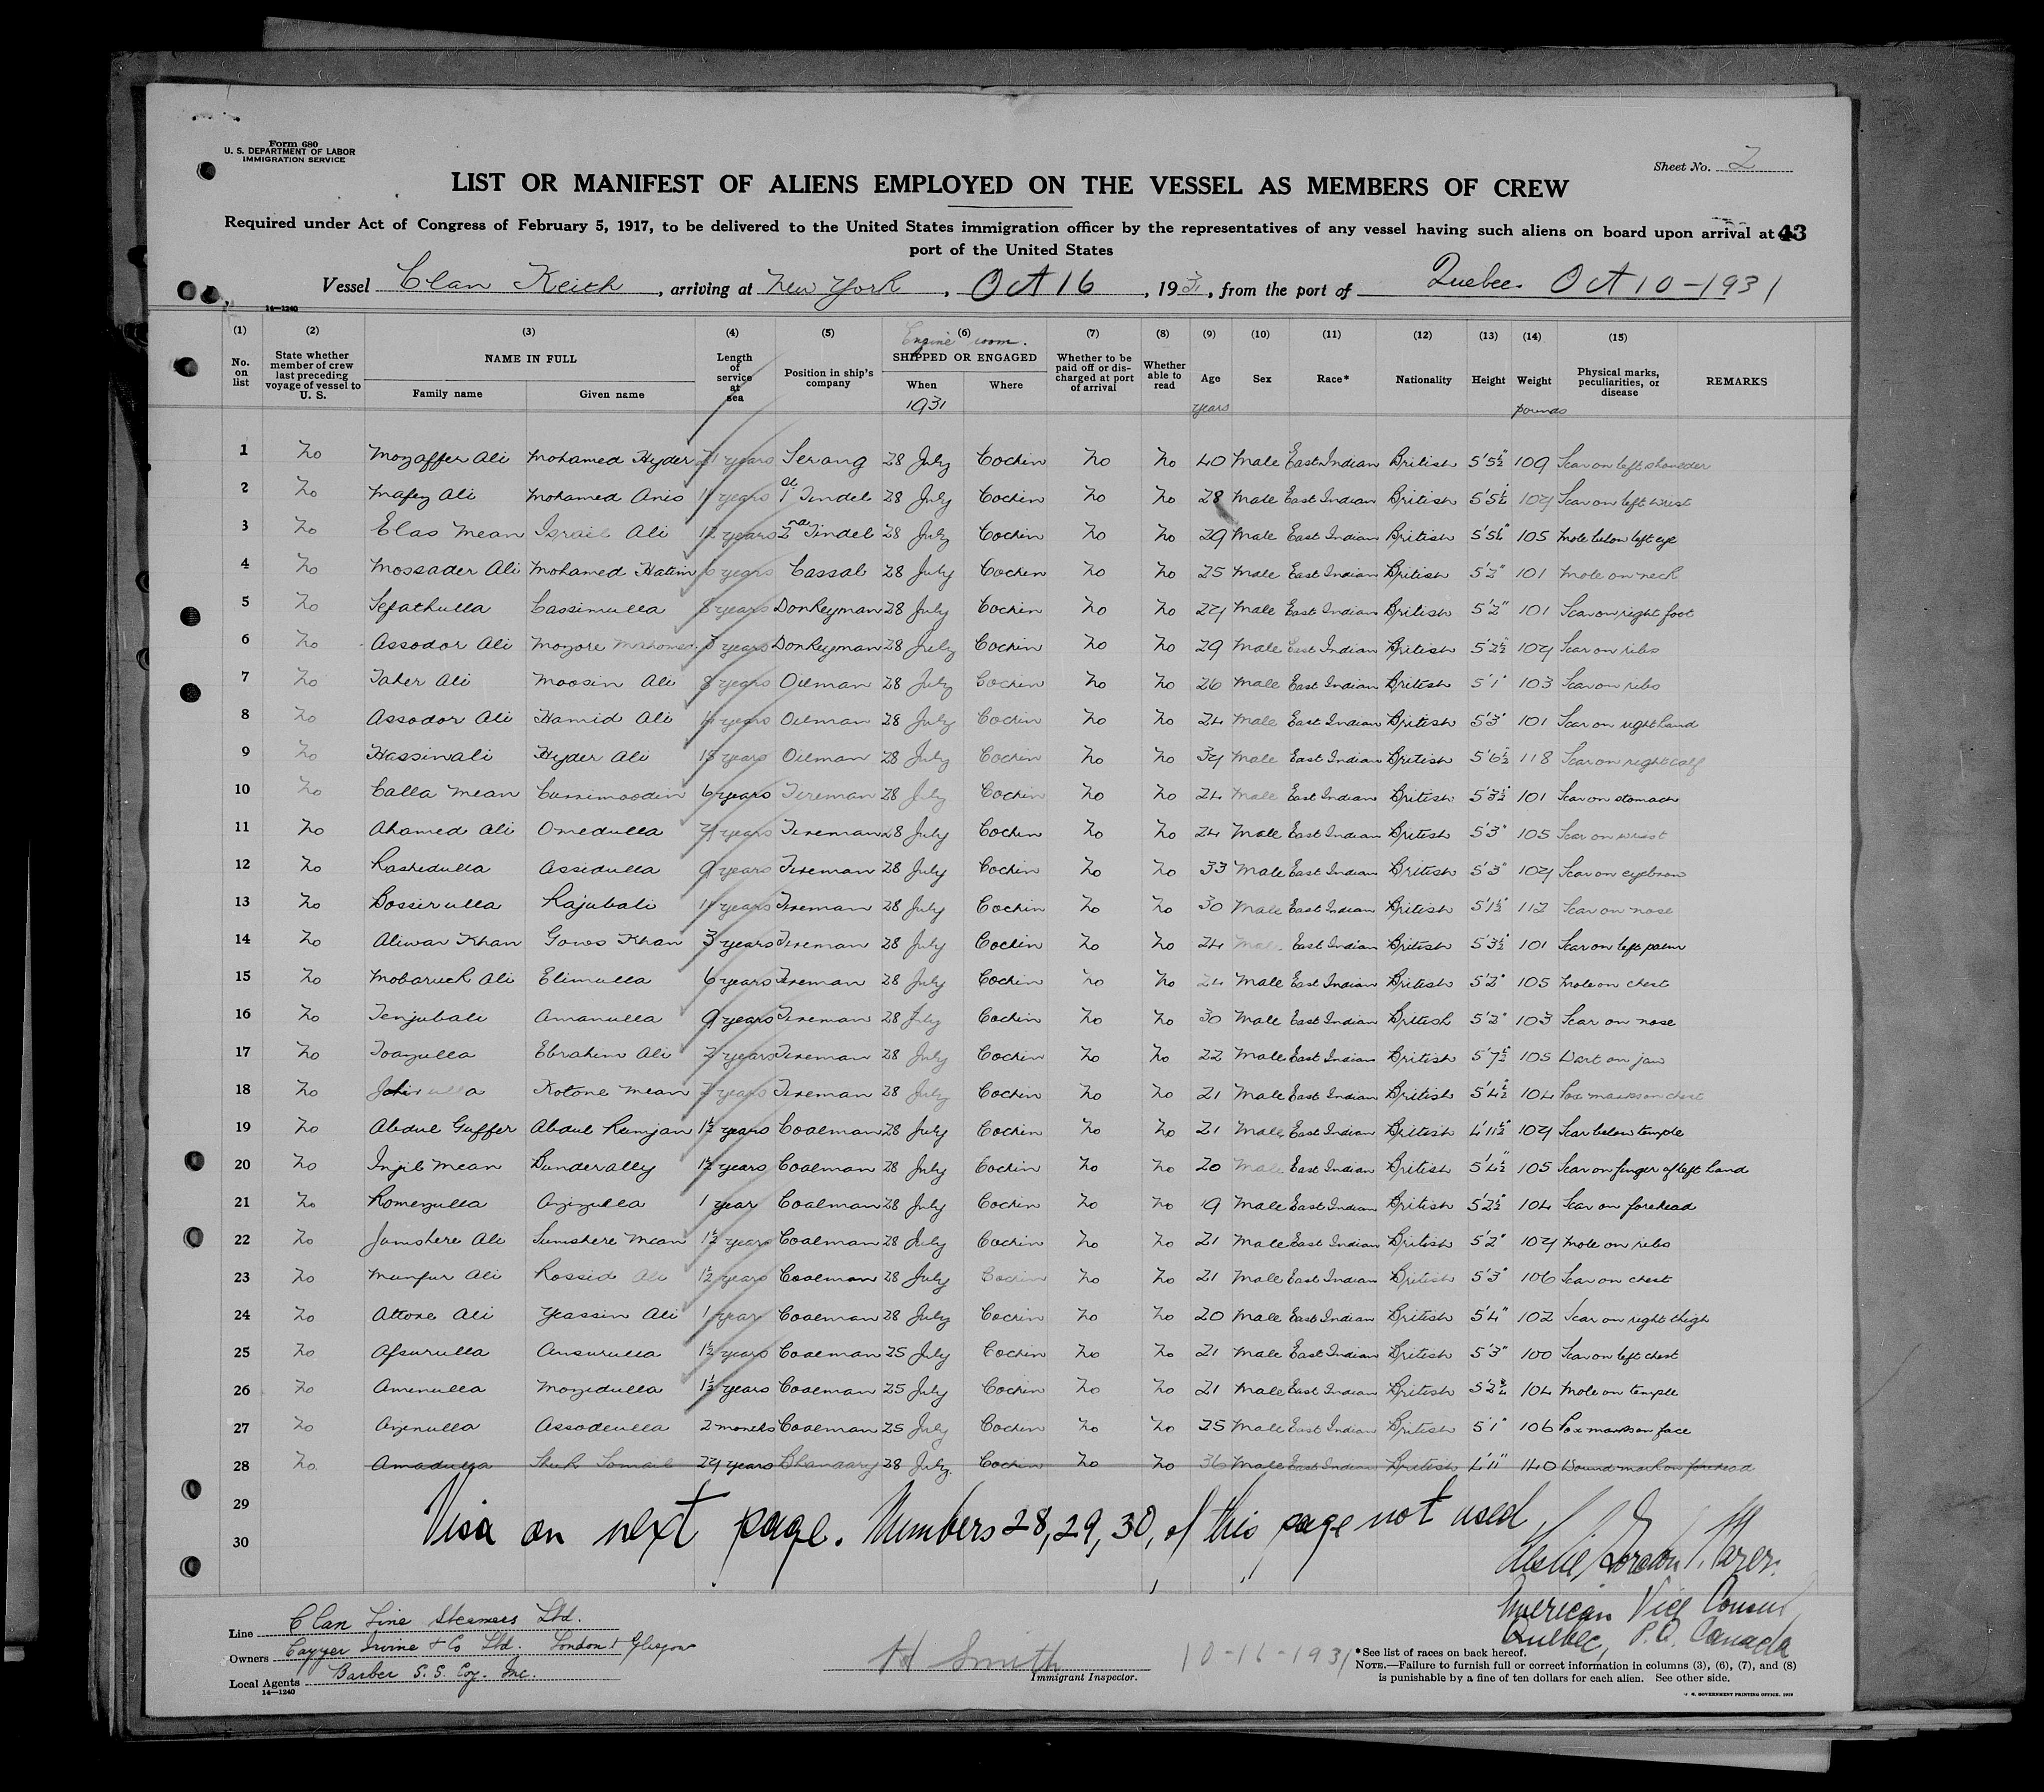 Form 680
U. S. DEPARTMENT OF LABOR
IMMIGRATION SERVICE
Sheet No. 2
LIST OR MANIFEST OF ALIENS EMPLOYED ON THE VESSEL AS MEMBERS OF CREW
Required under Act of Congress of February 5, 1917, to be delivered to the United States immigration officer by the representatives of any vessel having such aliens on board upon arrival at a
port of the United States
43
Vessel Clan Keith, arriving at New York, Oct 16, 1931, from the port of Quebec. Oct 10-1931
14—1240
(1) (2) (3) (4) (5) (6) (7) (8) (9) (10) (11) (12) (13) (14) (15)
Engine room.
No. on list State whether member of crew last preceding voyage of vessel to U. S. NAME IN FULL Family name Given name Length of service at sea Position in ship's company SHIPPED OR ENGAGED When Where Whether to be paid off or discharged at port of arrival Whether able to read Age Sex Race* Nationality Height Weight Physical marks, peculiarities, or disease REMARKS
1931 years pounds
1 No Mozaffer Ali Mohamed Hyder 21 years Serang 28 July Cochin No No 40 Male East Indian British 5'5½" 109 Scar on left shoulder
2 No Mafez Ali Mohamed Anis 11 years 1st Tindel 28 July Cochin No No 28 Male East Indian British 5'5½ 107 Scar on left wrist
3 No Elas Mean Israil Ali 12 years 2nd Tindel 28 July Cochin No No 29 Male East Indian British 5'5½" 105 Mole below left eye
4 No Mossader Ali Mohamed Hatim 6 years Cassab 28 July Cochin No No 25 Male East Indian British 5'2" 101 Mole on neck
5 No Sefathulla Cassimulla 8 years Donkeyman 28 July Cochin No No 27 Male East Indian British 5'2" 101 Scar on right foot
6 No Assodor Ali Mozore Mahomed 8 years Donkeyman 28 July Cochin No No 29 Male East Indian British 5'2½" 107 Scar on ribs
7 No Taher Ali Moosin Ali 8 years Oilman 28 July Cochin No No 26 Male East Indian British 5'1" 103 Scar on ribs
8 No Assodor Ali Hamid Ali years Oilman 28 July Cochin No No 24 Male East Indian British 5'3" 101 Scar on right hand
9 No Hassinali Hyder Ali 15 years Oilman 28 July Cochin No No 37 Male East Indian British 5'6½ 118 Scar on right calf
10 No Calla Mean Currimoodin 6 years Fireman 28 July Cochin No No 24 Male East Indian British 5'3½" 101 Scar on stomach
11 No Ahamed Ali Omedulla years Fireman 28 July Cochin No No 24 Male East Indian British 5'3" 105 Scar on wrist
12 No Rashedulla Assidulla 9 years Fireman 28 July Cochin No No 33 Male East Indian British 5'3" 107 Scar on eyebrow
13 No Bossirulla Rajubali 11 years Fireman 28 July Cochin No No 30 Male East Indian British 5'1½" 112 Scar on nose
14 No Aliwar Khan Gows Khan 3 years Fireman 28 July Cochin No No 24 Male East Indian British 5'3½" 101 Scar on left palm
15 No Mobaruck Ali Elimulla 6 years Fireman 28 July Cochin No No 24 Male East Indian British 5'2" 105 Mole on chest
16 No Tenjubali Amanulla 9 years Fireman 28 July Cochin No No 30 Male East Indian British 5'2" 103 Scar on nose
17 No Toazulla Ebrahim Ali 2 years Fireman 28 July Cochin No No 22 Male East Indian British 5'7½" 105 Wart on jaw
18 No Kotone Mean 2 years Fireman 28 July Cochin No No 21 Male East Indian British 5'4½" 104 Pox marks on chest
19 No Abdul Guffer Abdul Ramjan 1½ years Coalman 28 July Cochin No No 21 Male East Indian British 4'11½" 107 Scar below temple
20 No Injil Mean Bunderally 1½ years Coalman 28 July Cochin No No 20 Male East Indian British 5'4½" 105 Scar on finger of left hand
21 No Romezulla Azizulla 1 year Coalman 28 July Cochin No No 19 Male East Indian British 5'2½" 104 Scar on forehead
22 No Jamshere Ali Sumshere Mean 1½ years Coalman 28 July Cochin No No 21 Male East Indian British 5'2" 107 Mole on ribs
23 No Munfur Ali Rossid Ali 1½ years Coalman 28 July Cochin No No 21 Male East Indian British 5'3" 106 Scar on chest
24 No Attore Ali Yeassin Ali 1 year Coalman 28 July Cochin No No 20 Male East Indian British 5'4" 102 Scar on right thigh
25 No Afsurulla Ansurulla 1½ years Coalman 25 July Cochin No No 21 Male East Indian British 5'3" 100 Scar on left chest
26 No Amenulla Mozedulla 1½ years Coalman 25 July Cochin No No 21 Male East Indian British 104 Mole on temple
27 No Azenulla Assodeulla 2 months Coalman 25 July Cochin No No 25 Male East Indian British 5'1" 106 Pox marks on face
28 No. Amadulla Sheik Ismail 27 years Bhandary 28 July. Cochin No No 36 Male East Indian British 4'11" 140 Wound mark on forehead
29
30
Visa on next page. Numbers 28, 29, 30, of this page not used
Leslie Gordon
American Vice Consul,
Quebec, P.Q. Canada
Line Clan Line Steamers Ltd.
Owners Cayzer Irvine & Co Ltd. London & Glasgow
Local Agents Barber S. S. Coy. Inc.
14—1240
H Smith 10-16-1931
Immigrant Inspector.
*See list of races on back hereof.
NOTE.—Failure to furnish full or correct information in columns (3), (6), (7), and (8)
is punishable by a fine of ten dollars for each alien. See other side.
U. S. GOVERNMENT PRINTING OFFICE. 1929